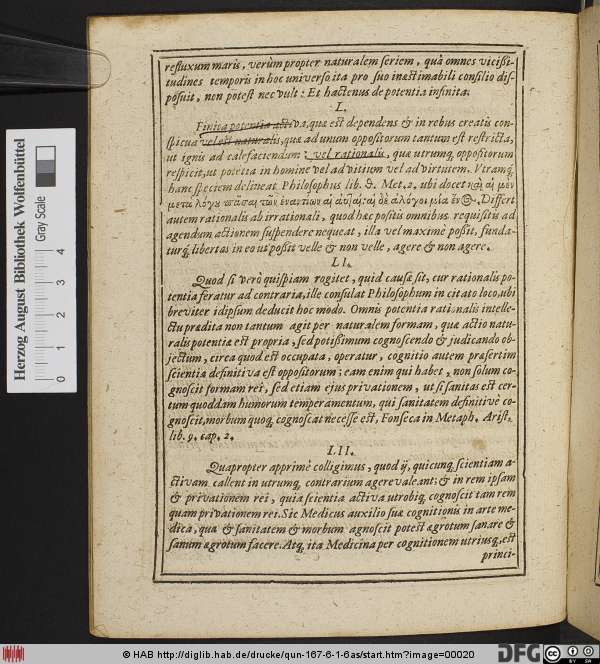 refluxum maris, verùm propter naturalem seriem, quâ omnes vicißi-
tudines temporis in hoc universo, ita pro suo inæstimabili consilio dis-
posuit, non potest nec vult: Et hactenus de potentia infinita.
L.
Finita potentia activa, quæ est dependens & in rebus creatis con-
spicua vel est naturalis, quæ ad unum oppositorum tantum est restricta,
ut ignis ad calefaciendum: vel rationalis, quæ utrumq; oppositorum
respicit, ut potetia in homine vel ad vitium vel ad virtutem. Utramq;
hanc speciem delineat Philosophus lib. 9. Met. 2. ubi docet καὶ αἱ μὲν
μετὰ λόγου πᾶσαι τῶν ἐναντίων αἱ αὐταί, αἱ δὲ ἄλογοι μία ἑνός. Differt
autem rationalis ab irrationali, quod hæc positis omnibus requisitis ad
agendum actionem suspendere nequeat, illa vel maximè possit, funda-
turq; libertas in eo ut possit velle & non velle, agere & non agere.
LI.
Quod si verò quispiam rogitet, quid causæ sit, cur rationalis po-
tentia feratur ad contraria, ille consulat Philosophum in citato loco, ubi
breviter idipsum deducit hoc modo. Omnis potentia rationalis intelle-
ctu prædita non tantum agit per naturalem formam, quæ actio natu-
ralis potentiæ est propria, sed potißimum cognoscendo & judicando ob-
jectum, circa quod est occupata, operatur, cognitio autem præsertim
scientia definitiva est oppositorum; eam enim qui habet, non solum co-
gnoscit formam rei, sed etiam ejus privationem, ut si sanitas est cer-
tum quoddam humorum temperamentum, qui sanitatem definitivè co-
gnoscit, morbum quoq; cognoscat necesse est, Fonseca in Metaph. Arist.
lib. 9. cap. 2.
LII.
Quapropter apprimè colligimus, quod ij, quicunq; scientiam a-
ctivam callent in utrumq; contrarium agere valeant; & in rem ipsam
& privationem rei, quia scientia activa utrobiq; cognoscit tam rem
quam privationem rei. Sic Medicus auxilio suæ cognitionis in arte me-
dica, quæ & sanitatem & morbum agnoscit potest ægrotum sanare &
sanum ægrotum facere. Atq; ita Medicina per cognitionem utriusq;, est
princi-
Herzog August Bibliothek Wolfenbüttel
Gray Scale
0 1 2 3 4
© HAB http://diglib.hab.de/drucke/qun-167-6-1-6as/start.htm?image=00020
DFG
CC BY SA